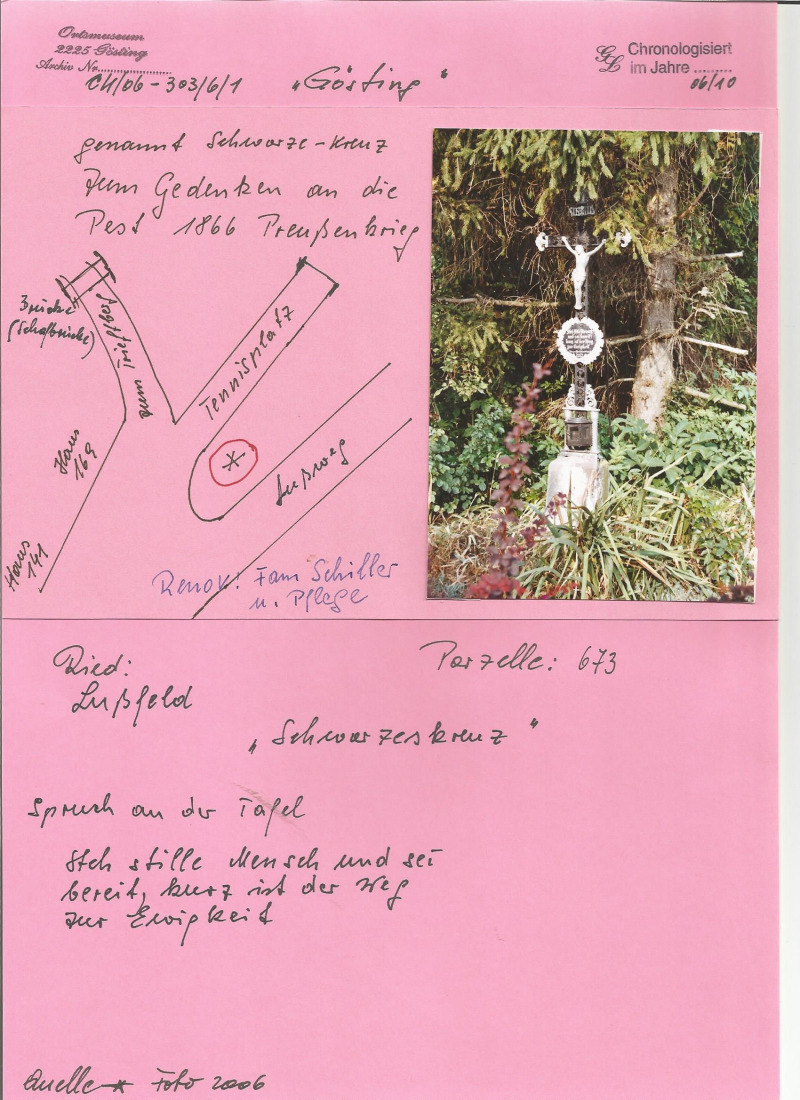 Ortsmuseum
2225 Gösting
Archiv Nr.
CH/06-303/6/1
„Gösting“
GL Chronologisiert
im Jahre
06/10
genannt Schwarze-Kreuz
Zum Gedenken an die
Pest 1866 Preußenkrieg
Brücke
(Schafbrücke)
zum
Tennisplatz
Haus
169
Haus
141
Fußweg
Renov! Fam Schiller
u. Pflege
Ried:
Lußfeld
Parzelle: 673
„Schwarzeskreuz“
Spruch an der Tafel
Steh stille Mensch und sei
bereit, kurz ist der Weg
zur Ewigkeit
Quelle * Foto 2006